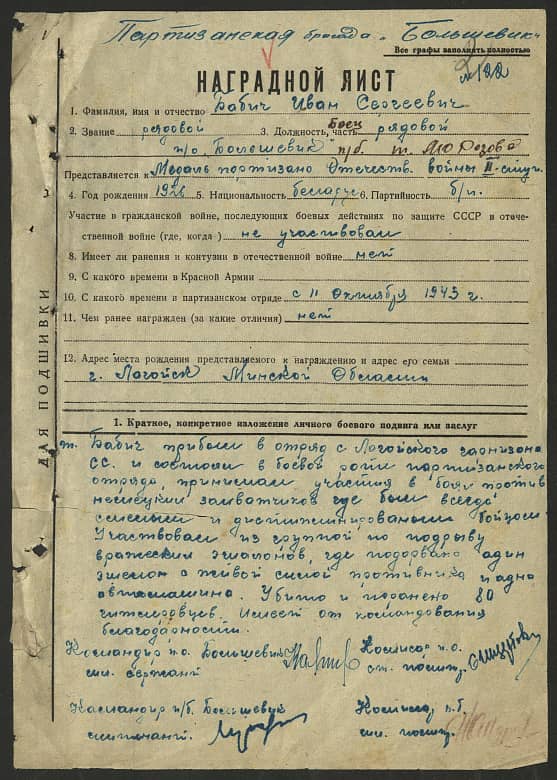 Партизанская бригада „Большевик“
Все графы заполнять полностью
№122
НАГРАДНОЙ ЛИСТ
1. Фамилия, имя и отчество Бабич Иван Сергеевич
2. Звание рядовой 3. Должность, часть Боец рядовой
п/о Большевик п/б
Представляется к Медаль партизано Отечеств. войны II-степ.
4. Год рождения 1926 5. Национальность беларус 6. Партийность б/п.
Участие в гражданской войне, последующих боевых действиях по защите СССР в отече-
ственной войне (где, когда) не участвовал
8. Имеет ли ранения и контузии в отечественной войне нет
9. С какого времени в Красной Армии
10. С какого времени в партизанском отряде с 11 Октября 1943 г.
11. Чем ранее награжден (за какие отличия) нет
12. Адрес места рождения представляемого к награждению и адрес его семьи
г. Логойск Минской Области
ДЛЯ ПОДШИВКИ
1. Краткое, конкретное изложение личного боевого подвига или заслуг
т. Бабич прибыл в отряд с Логойского гарнизона
СС. и состоял в боевой роти партизанского
отряда, принимал участия в боях против
немецких захватчиков где был всегда
смелым и дисциплинированым бойцом
Участвовал из группой по подрыву
вражеских эшалонов, где подорвано адин
эшелон с живой силой противника и адно
автомашина. Убито и поранено 80
гитлеровцев. Имеет от командования
благодарности.
Командир п.о. Большевик Комисар п.о.
мл. сержант ст. политр.
Каммандир п/б. Большевик Комисар п.б.
лейтенант. мл. политр.